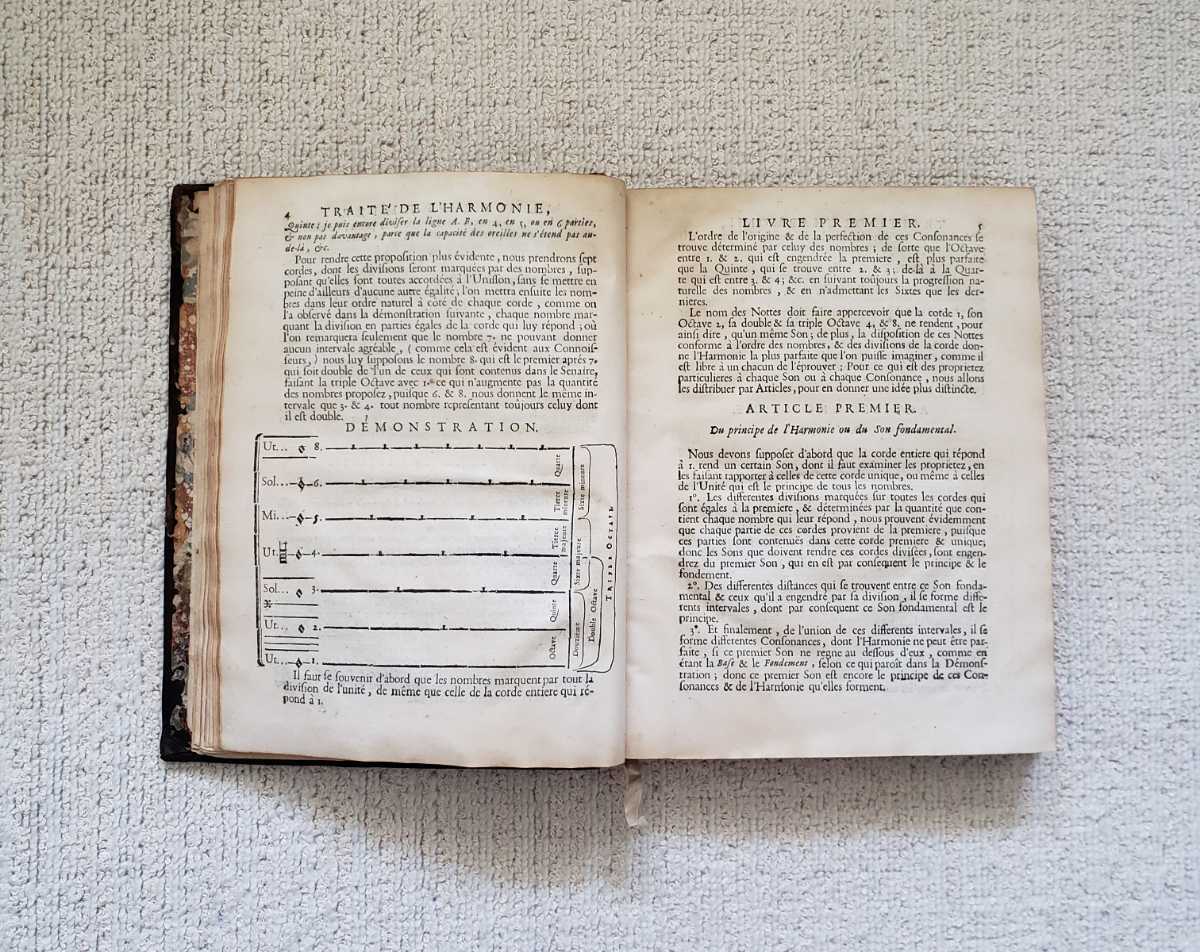 4 TRAITÉ DE L'HARMONIE,
Quinte ; je puis encore diviser la ligne A. B, en 4, en 5, ou en 6 parties,
& non pas davantage, parce que la capacité des oreilles ne s'étend pas au-
de-là, &c.
Pour rendre cette proposition plus évidente, nous prendrons sept
cordes, dont les divisions seront marquées par des nombres, sup-
posant qu'elles sont toutes accordées à l'Unisson, sans se mettre en
peine d'ailleurs d'aucune autre égalité ; l'on mettra ensuite les nom-
bres dans leur ordre naturel à côté de chaque corde, comme on
l'a observé dans la démonstration suivante, chaque nombre mar-
quant la division en parties égales de la corde qui luy répond ; où
l'on remarquera seulement que le nombre 7. ne pouvant donner
aucun intervale agréable, ( comme cela est évident aux Connois-
seurs, ) nous luy supposons le nombre 8. qui est le premier aprés 7.
qui soit double de l'un de ceux qui sont contenus dans le Senaire,
faisant la triple Octave avec 1. ce qui n'augmente pas la quantité
des nombres proposez, puisque 6. & 8. nous donnent le même in-
tervale que 3. & 4. tout nombre representant toujours celuy dont
il est double.
DÉMONSTRATION.
Ut... 8.
Sol... 6.
Mi... 5.
Ut. 4.
Sol... 3.
Ut... 2.
Ut... 1.
Quarte
Tierce mineure
Tierce majeure
Quarte
Quinte
Octave
Sixte mineure
Sixte majeure
Douziéme
Double Octave
TRIPLE OCTAVE
Il faut se souvenir d'abord que les nombres marquent par tout la
division de l'unité, de même que celle de la corde entiere qui ré-
pond à 1.
LIVRE PREMIER. 5
L'ordre de l'origine & de la perfection de ces Consonances se
trouve déterminé par celuy des nombres ; de sorte que l'Octave
entre 1. & 2. qui est engendrée la premiere, est plus parfaite
que la Quinte, qui se trouve entre 2. & 3 ; de-là à la Quar-
te qui est entre 3. & 4 ; &c. en suivant toujours la progression na-
turelle des nombres, & en n'admettant les Sixtes que les der-
nieres.
Le nom des Nottes doit faire appercevoir que la corde 1, son
Octave 2, sa double & sa triple Octave 4, & 8, ne rendent, pour
ainsi dire, qu'un même Son ; de plus, la disposition de ces Nottes
conforme à l'ordre des nombres, & des divisions de la corde don-
ne l'Harmonie la plus parfaite que l'on puisse imaginer, comme il
est libre à un chacun de l'éprouver ; Pour ce qui est des proprietez
particulieres à chaque Son ou à chaque Consonance, nous allons
les distribuer par Articles, pour en donner une idée plus distincte.
ARTICLE PREMIER.
Du principe de l'Harmonie ou du Son fondamental.
Nous devons supposer d'abord que la corde entiere qui répond
à 1. rend un certain Son, dont il faut examiner les proprietez, en
les faisant rapporter à celles de cette corde unique, ou même à celles
de l'Unité qui est le principe de tous les nombres.
1°. Les differentes divisions marquées sur toutes les cordes qui
sont égales à la premiere, & déterminées par la quantité que con-
tient chaque nombre qui leur répond, nous prouvent évidemment
que chaque partie de ces cordes provient de la premiere, puisque
ces parties sont contenuës dans cette corde premiere & unique,
donc les Sons que doivent rendre ces cordes divisées, sont engen-
drez du premier Son, qui en est par consequent le principe & le
fondement.
2°. Des differentes distances qui se trouvent entre ce Son fonda-
mental & ceux qu'il a engendré par sa division, il se forme diffe-
rents intervales, dont par consequent ce Son fondamental est le
principe.
3°. Et finalement, de l'union de ces differents intervales, il se
forme differentes Consonances, dont l'Harmonie ne peut être par-
faite, si ce premier Son ne regne au dessous d'eux, comme en
étant la Base & le Fondement, selon ce qui paroît dans la Démons-
tration ; donc ce premier Son est encore le principe de ces Con-
sonances & de l'Harmonie qu'elles forment.